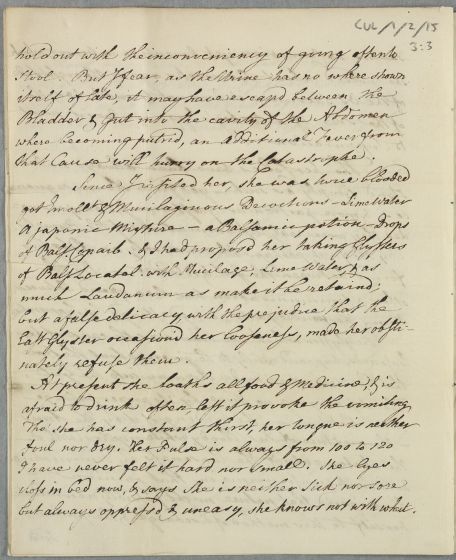 CUL/1/2/15
3:3
hold out with the inconveniency of going often to
Stool. But I fear, as the Urine has no where shown
itself of late, it may have escap'd between the
Bladder & Gut into the cavity of the Abdomen
where becoming putrid, an additional Fever from
that Cause will hurry on the Catastrophe.
Since I visited her, she was twice blooded
got Emollt & Mucilaginous Decoctions – Lime Water
A japonic Mixture – a Balsamic potion – Drops
of Bals: Copaib. & I had propos'd her taking Glysters
of Bals Locatel. with Mucilage, Lime Water, & as
much Laudanum as make it be retaind;
but a false delicacy, with the prejudice that the
last Glyster occasiond her looseness, made her obsti-
nately refuse them.
At present she loaths all food & Medicine, & is
afraid to drink often, lest it provoke the vomiting
Tho' she has constant thirst, her tongue is neither
foul nor dry. Her Pulse is always from 100 to 120
I have never felt it hard nor small. She lyes
closs in bed now, & says she is neither sick nor sore
but always oppress'd & uneasy, she knows not with what.